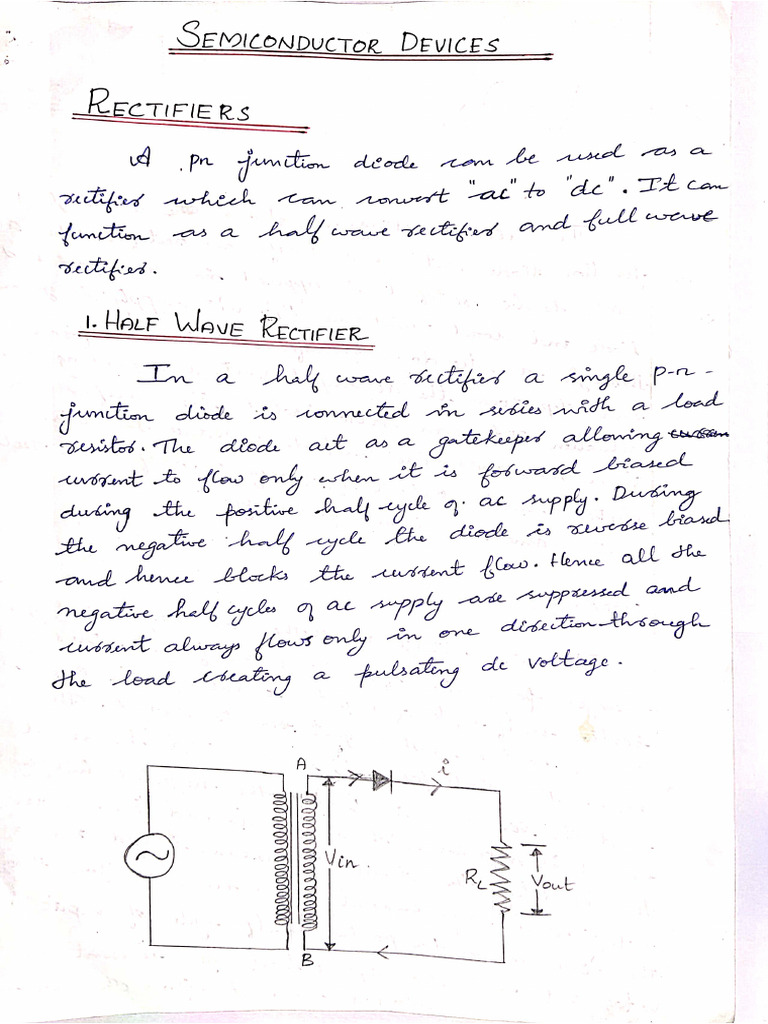 SEMICONDUCTOR DEVICES
RECTIFIERS
A pn junction diode can be used as a
rectifier which can convert "ac" to "dc". It can
function as a half wave rectifier and full wave
rectifier.
1. HALF WAVE RECTIFIER
In a half wave rectifier a single p-n-
junction diode is connected in series with a load
resistor. The diode act as a gatekeeper allowing
current to flow only when it is forward biased
during the positive half cycle of ac supply. During
the negative half cycle the diode is reverse biased
and hence blocks the current flow. Hence all the
negative half cycles of ac supply are suppressed and
current always flows only in one direction through
the load creating a pulsating dc voltage.
A
i
Vin
RL
Vout
B